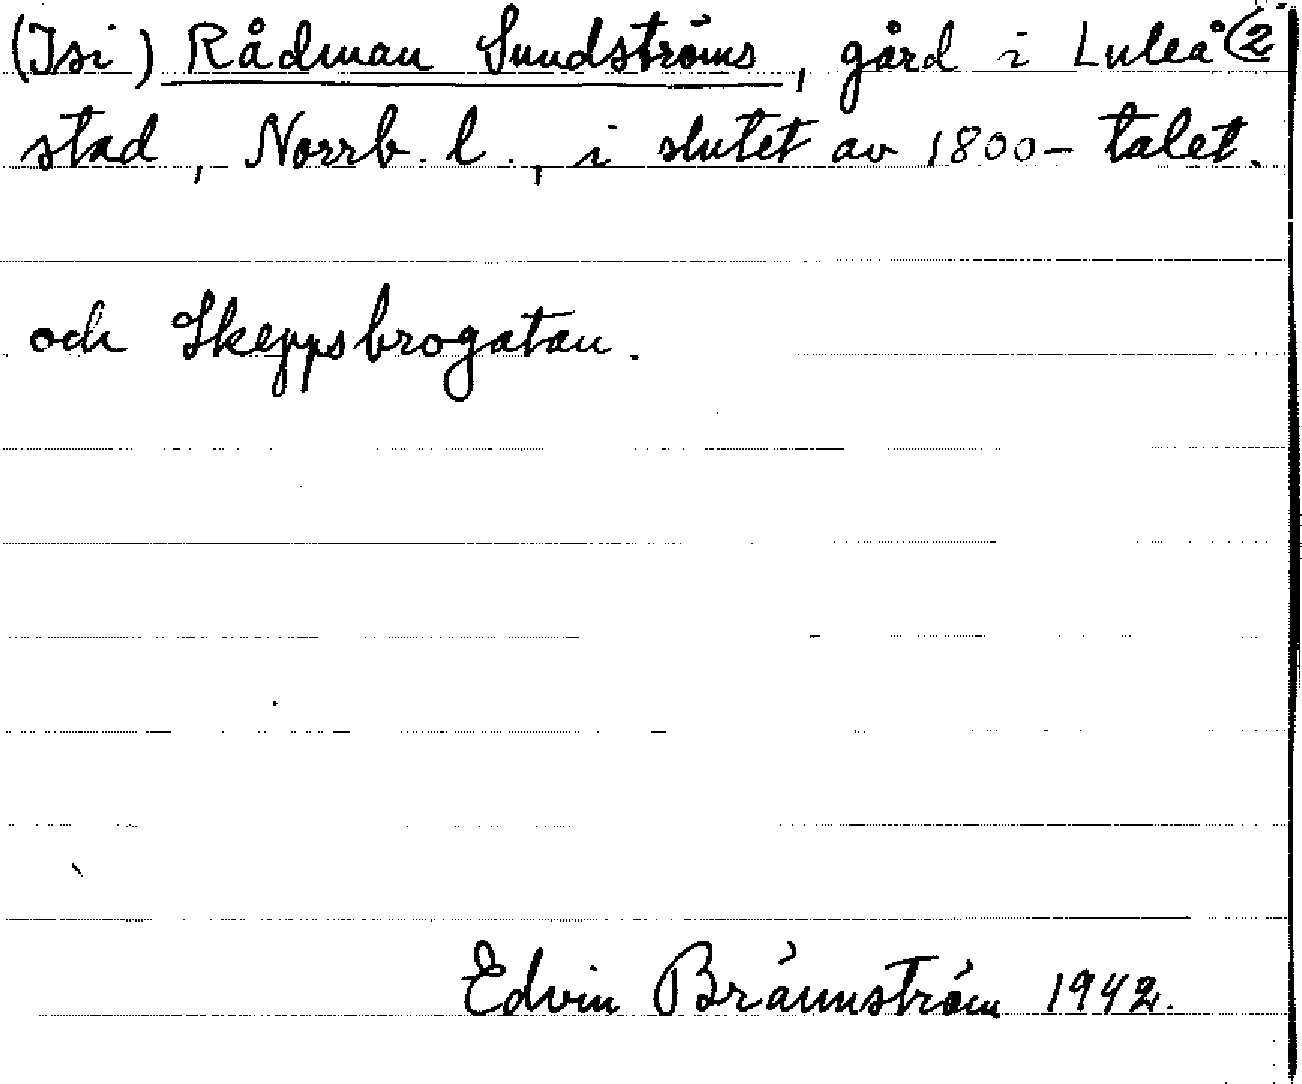 (Isi) Rådman Sundströms, gård i Luleå (2
stad, Norrb. l., i slutet av 1800-talet.
och Skeppsbrogatan.
Edvin Brännström 1942.